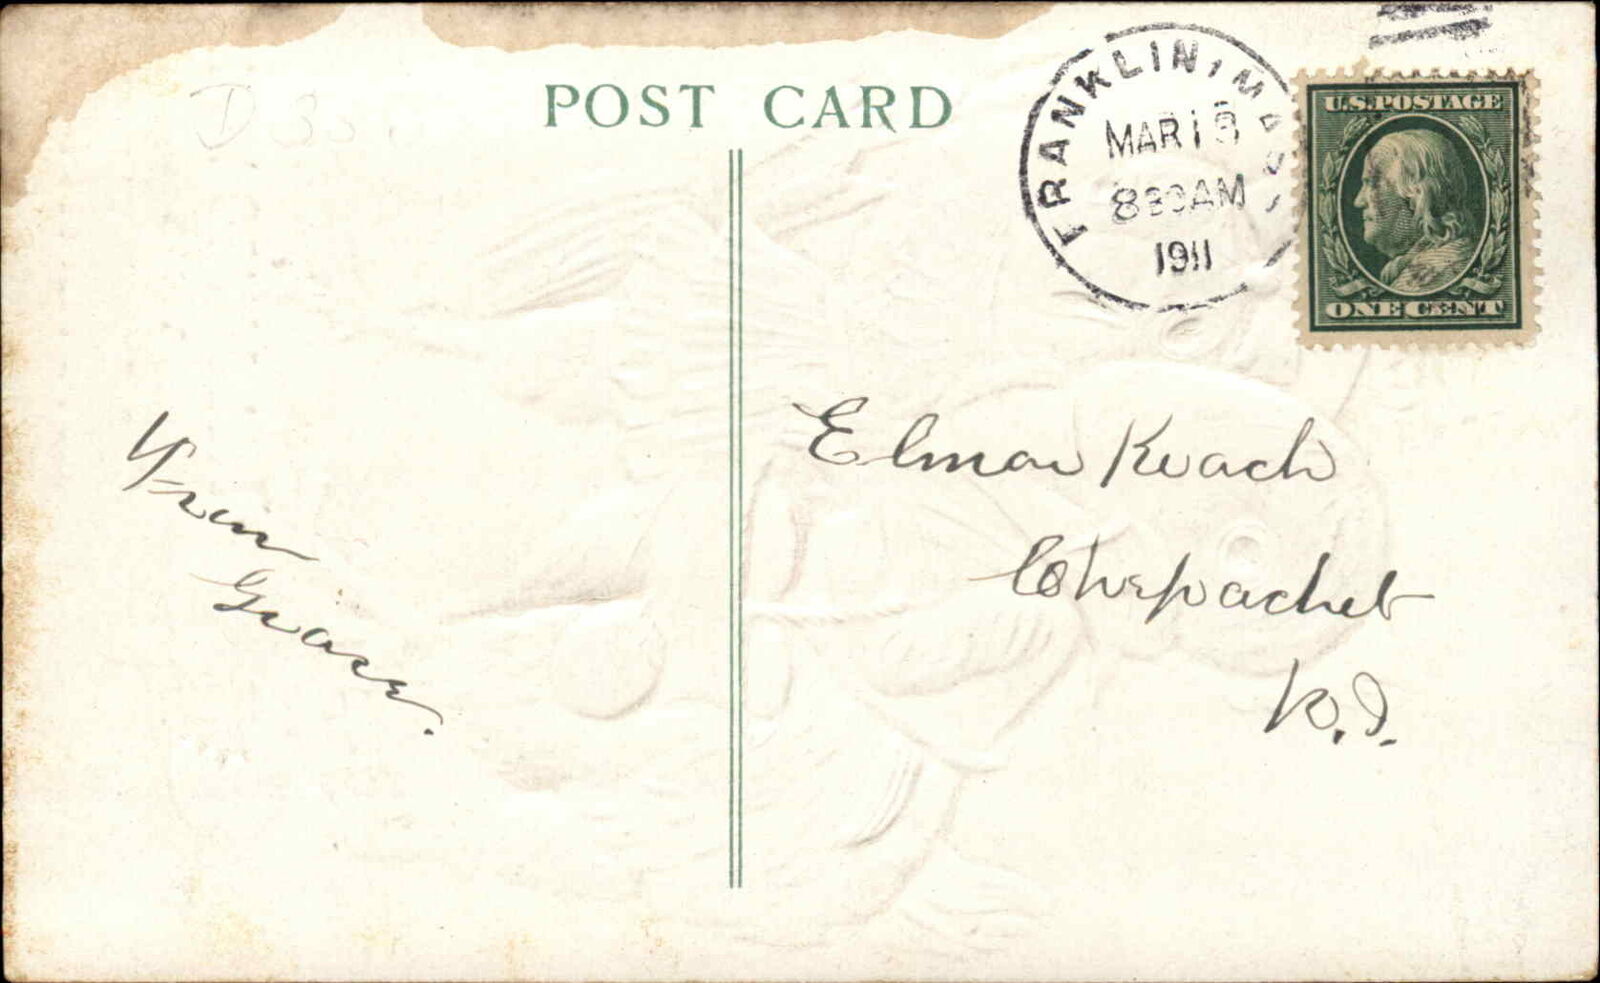 D 30
POST CARD
FRANKLIN, MASS.
MAR 15
830AM
1911
U.S. POSTAGE
ONE CENT
From
Grace.
Elmer Keach
Chepachet
R.I.